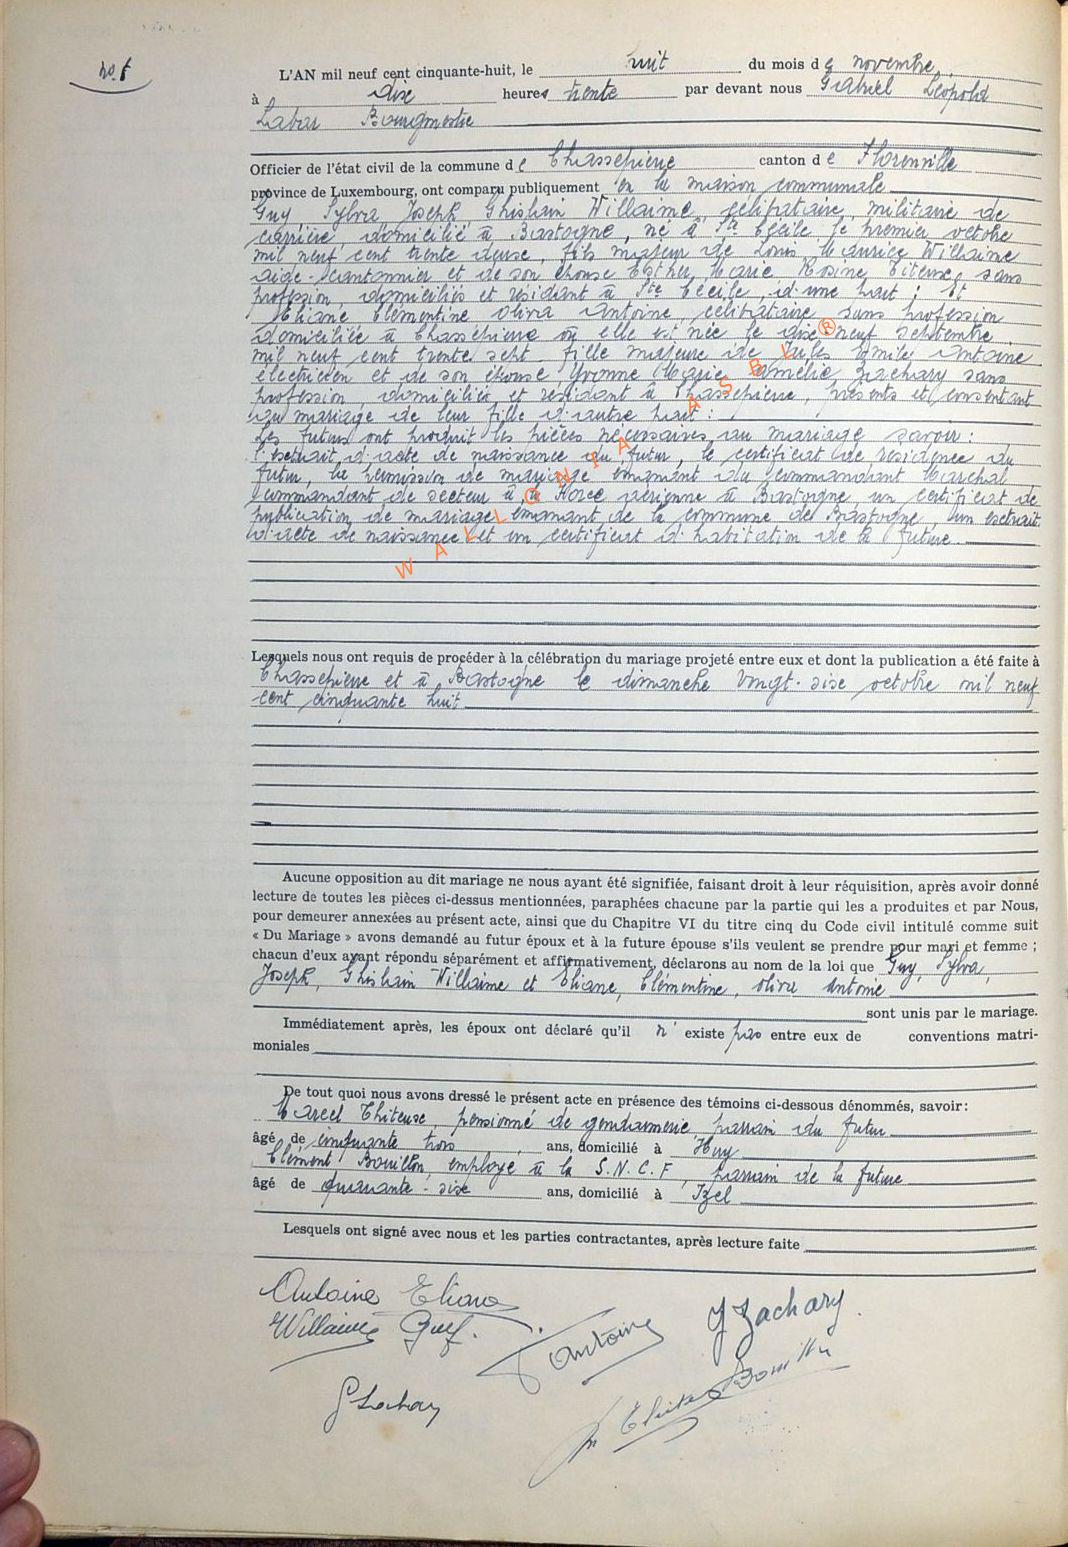 L'AN mil neuf cent cinquante-huit, le huit du mois de novembre,
à dix heures trente par devant nous Gabriel Léopold
Labar Bourgmestre
Officier de l'état civil de la commune de Chassepierre canton de Florenville
province de Luxembourg, ont comparu publiquement en la maison communale
Guy Sylva Joseph Ghislain Willaime, célibataire, militaire de
carrière, domicilié à Bastogne, né à Ste Cécile le premier octobre
mil neuf cent trente deux, fils majeur de Louis Maurice Willaime
aide-cantonnier et de son épouse Esther Marie Rosine Titeux, sans
profession, domiciliés et résidant à Ste Cécile, d'une part ; Et
Eliane Clémentine Olivia Antoine, célibataire sans profession
domiciliée à Chassepierre où elle est née le dix neuf septembre
mil neuf cent trente sept fille majeure de Jules Emile Antoine
électricien et de son épouse Yvonne Marie Amélie Zachary sans
profession, domiciliés et résidant à Chassepierre, présents et consentant
au mariage de leur fille d'autre part :
Les futurs ont produit les pièces nécessaires au mariage savoir :
l'extrait d'acte de naissance du futur, le certificat de résidence du
futur, la permission de mariage émanant du commandant Marchal
commandant de secteur à la Force aérienne à Bastogne, un certificat de
publication de mariage émanant de la commune de Bastogne, un extrait
d'acte de naissance et un certificat d'habitation de la future.
WALLONIA ASBL ®
Lesquels nous ont requis de procéder à la célébration du mariage projeté entre eux et dont la publication a été faite à
Chassepierre et à Bastogne le dimanche vingt-six octobre mil neuf
cent cinquante huit
Aucune opposition au dit mariage ne nous ayant été signifiée, faisant droit à leur réquisition, après avoir donné
lecture de toutes les pièces ci-dessus mentionnées, paraphées chacune par la partie qui les a produites et par Nous,
pour demeurer annexées au présent acte, ainsi que du Chapitre VI du titre cinq du Code civil intitulé comme suit
« Du Mariage » avons demandé au futur époux et à la future épouse s'ils veulent se prendre pour mari et femme ;
chacun d'eux ayant répondu séparément et affirmativement, déclarons au nom de la loi que Guy, Sylva,
Joseph, Ghislain Willaime et Eliane, Clémentine, Olivia Antoine
sont unis par le mariage.
Immédiatement après, les époux ont déclaré qu'il n'existe pas entre eux de conventions matri-
moniales
De tout quoi nous avons dressé le présent acte en présence des témoins ci-dessous dénommés, savoir :
Marcel Thiteux, pensionné de gendarmerie parrain du futur
âgé de cinquante trois ans, domicilié à Huy
Clément Bouillon, employé à la S.N.C.F, parrain de la future
âgé de quarante-six ans, domicilié à Izel
Lesquels ont signé avec nous et les parties contractantes, après lecture faite
Antoine Eliane
Willaime Guy.
Antoine
Y Zachary.
G Labar
Bouillon